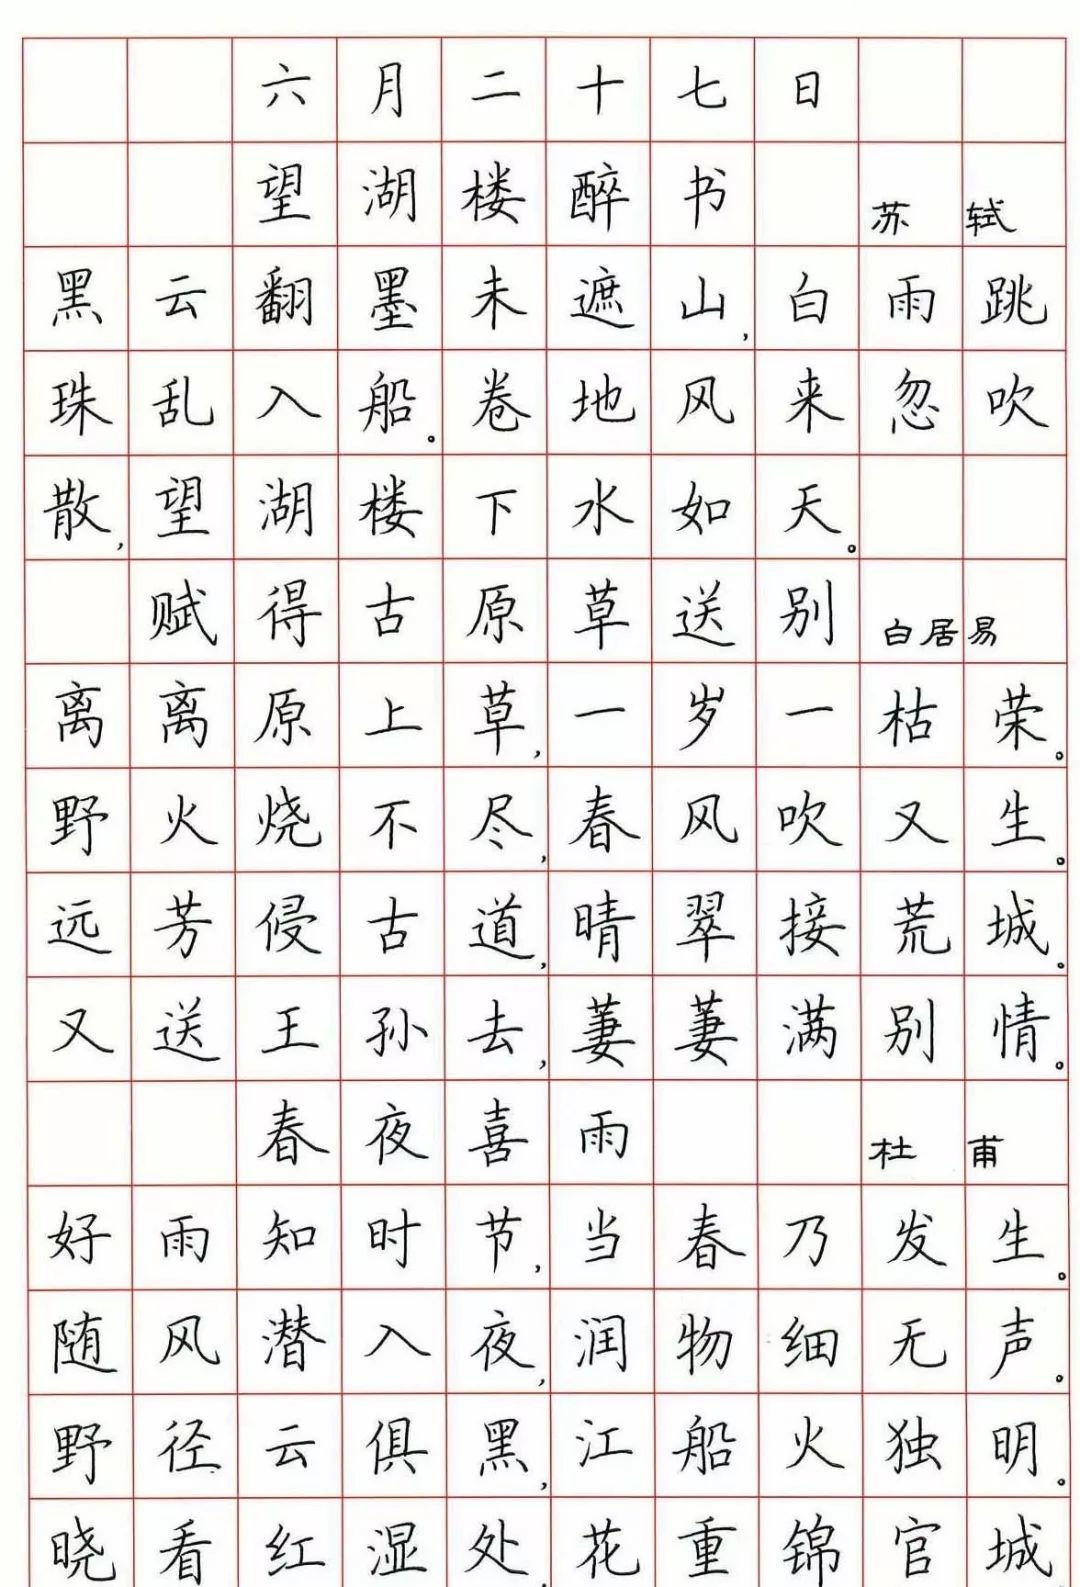 六月二十七日
望湖楼醉书 苏轼
黑云翻墨未遮山,白雨跳
珠乱入船。卷地风来忽吹
散,望湖楼下水如天。
赋得古原草送别 白居易
离离原上草,一岁一枯荣。
野火烧不尽,春风吹又生。
远芳侵古道,晴翠接荒城。
又送王孙去,萋萋满别情。
春夜喜雨 杜甫
好雨知时节,当春乃发生。
随风潜入夜,润物细无声。
野径云俱黑,江船火独明。
晓看红湿处,花重锦官城